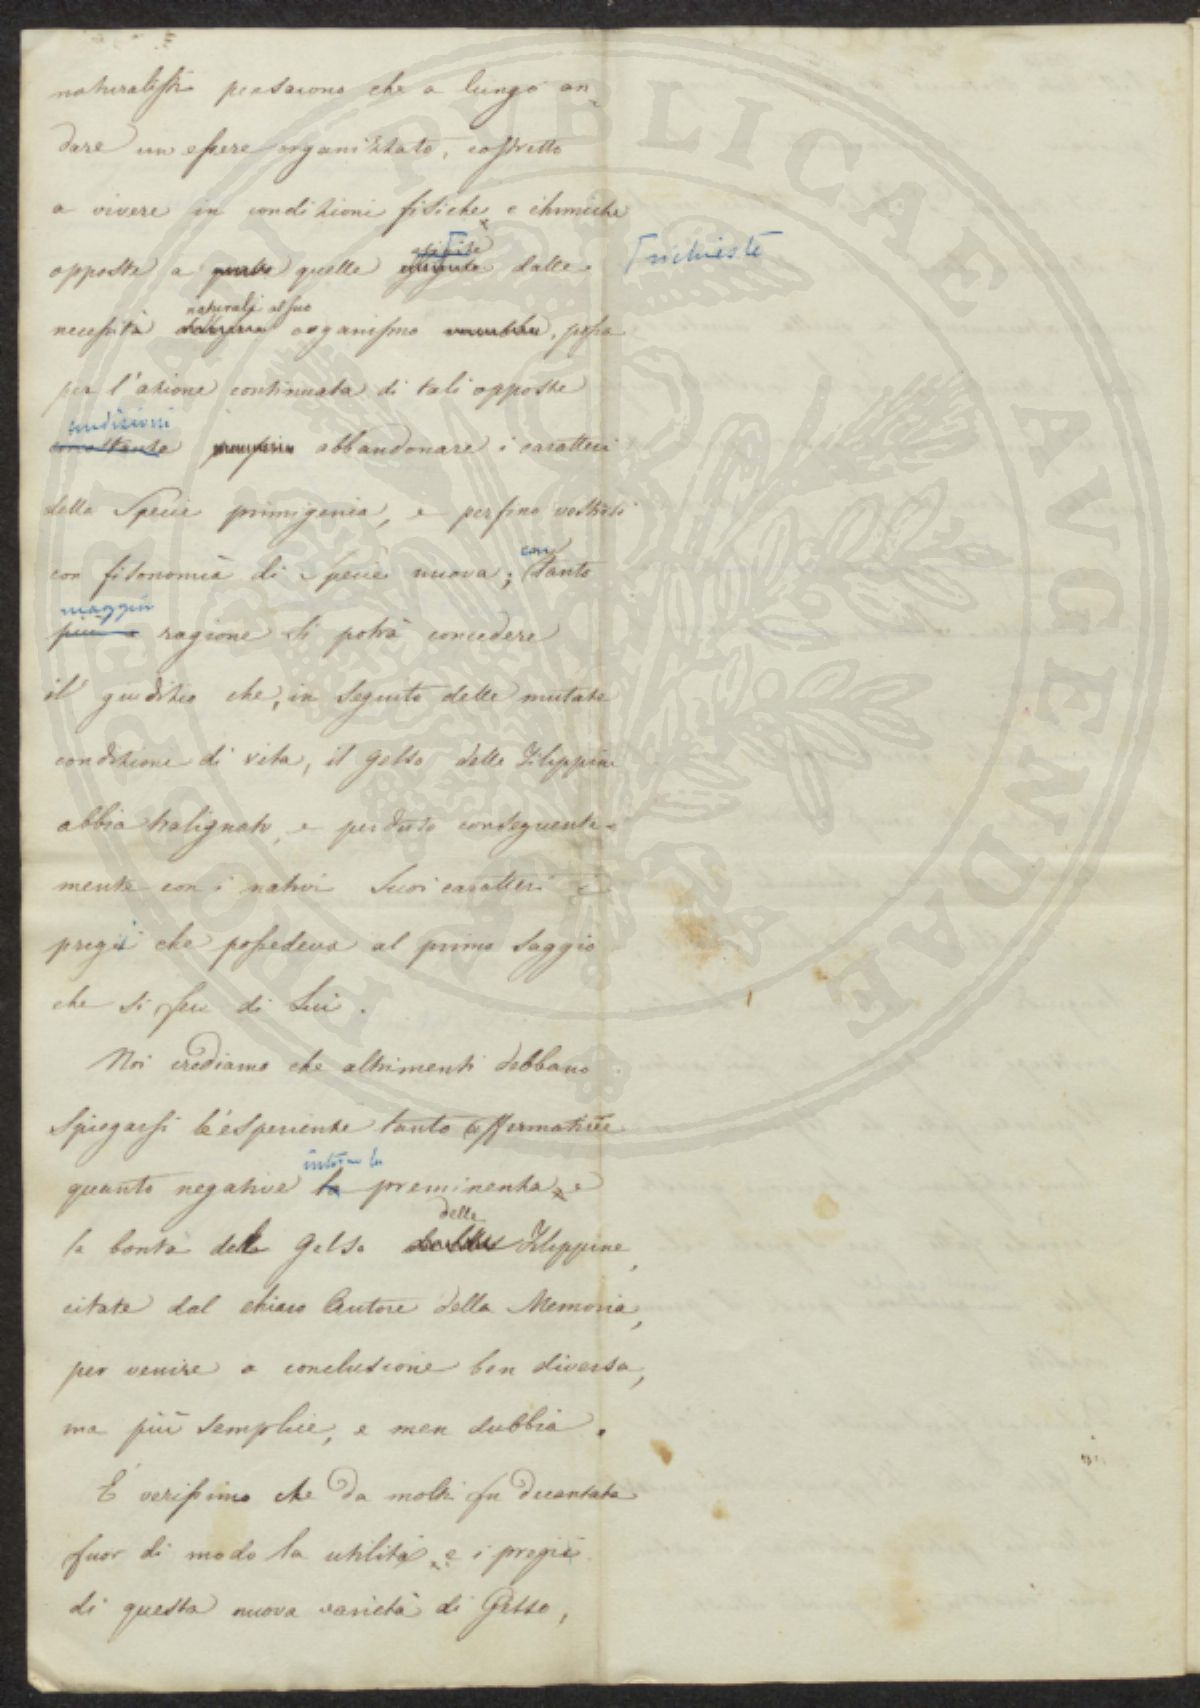 naturalisti pensarono che a lungo an-
dare un essere organizzato, costretto
a vivere in condizioni fisiche e chimiche
opposte a quelle richieste dalle
necessità naturali al suo organismo, possa
per l'azione continuata di tali opposte
condizioni abbandonare i caratteri
della Specie primigenia, e perfino vestirsi
con fisonomia di Specie nuova; con tanto
maggior ragione si potrà concedere
il giudizio che, in seguito delle mutate
condizione di vita, il gelso delle Filippine
abbia tralignato, e perduto conseguente-
mente con i nativi suoi caratteri i
pregi che possedeva al primo saggio
che si feu di Lui.
Noi crediamo che altrimenti debbano
spiegarsi l'esperienze tanto affermative
quanto negative intorno la preminenta e
la bontà del gelso delle Filippine,
citate dal chiaro Autore della Memoria,
per venire a conclusione ben diversa,
ma più semplice, e men dubbia.
È verissimo che da molti fu decantata
fuor di modo la utilità e i pregii
di questa nuova varietà di Gelso,
PROSPERITATI PUBLICAE AVGENDAE